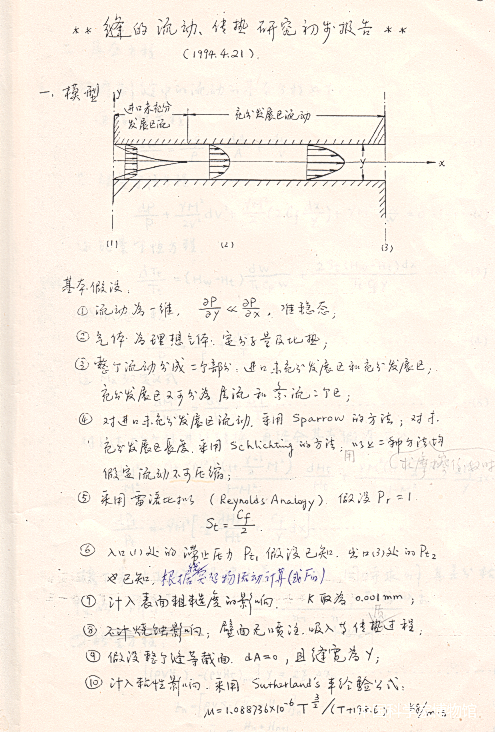 ** 缝的流动、传热研究初步报告 **
(1994.4.21).
一. 模型
y
进口未充分
发展区流
充分发展区流动
Y
x
(1) (2) (3)
基本假设:
① 流动为一维, ∂P/∂y ≪ ∂P/∂x, 准稳态;
② 气体为理想气体. 定分子量及比热;
③ 整个流动分成二个部分: 进口未充分发展区和充分发展区;
充分发展区又可分为层流和紊流二个区;
④ 对进口未充分发展区流动. 采用 Sparrow 的方法; 对未
充分发展区长度. 采用 Schlichting 的方法. 以上二种方法均
用
假定流动不可压缩;
⑤ 采用雷诺比拟 (Reynolds Analogy). 假设 Pr = 1.
St = Cf/2.
⑥ 入口(1)处的滞止压力 Pt1 假设已知. 出口(3)处的 Pt2
也已知.
⑦ 计入表面粗糙度的影响. K 取为 0.001mm;
⑧ 不计烧蚀影响; 壁面无喷注. 吸入等传热过程;
⑨ 假设整个缝等截面. dA=0, 且缝宽为 Y;
⑩ 计入粘性影响. 采用 Sutherland's 半经验公式:
μ = 1.088736×10⁻⁶ T^(3/2) /(T+198.6)